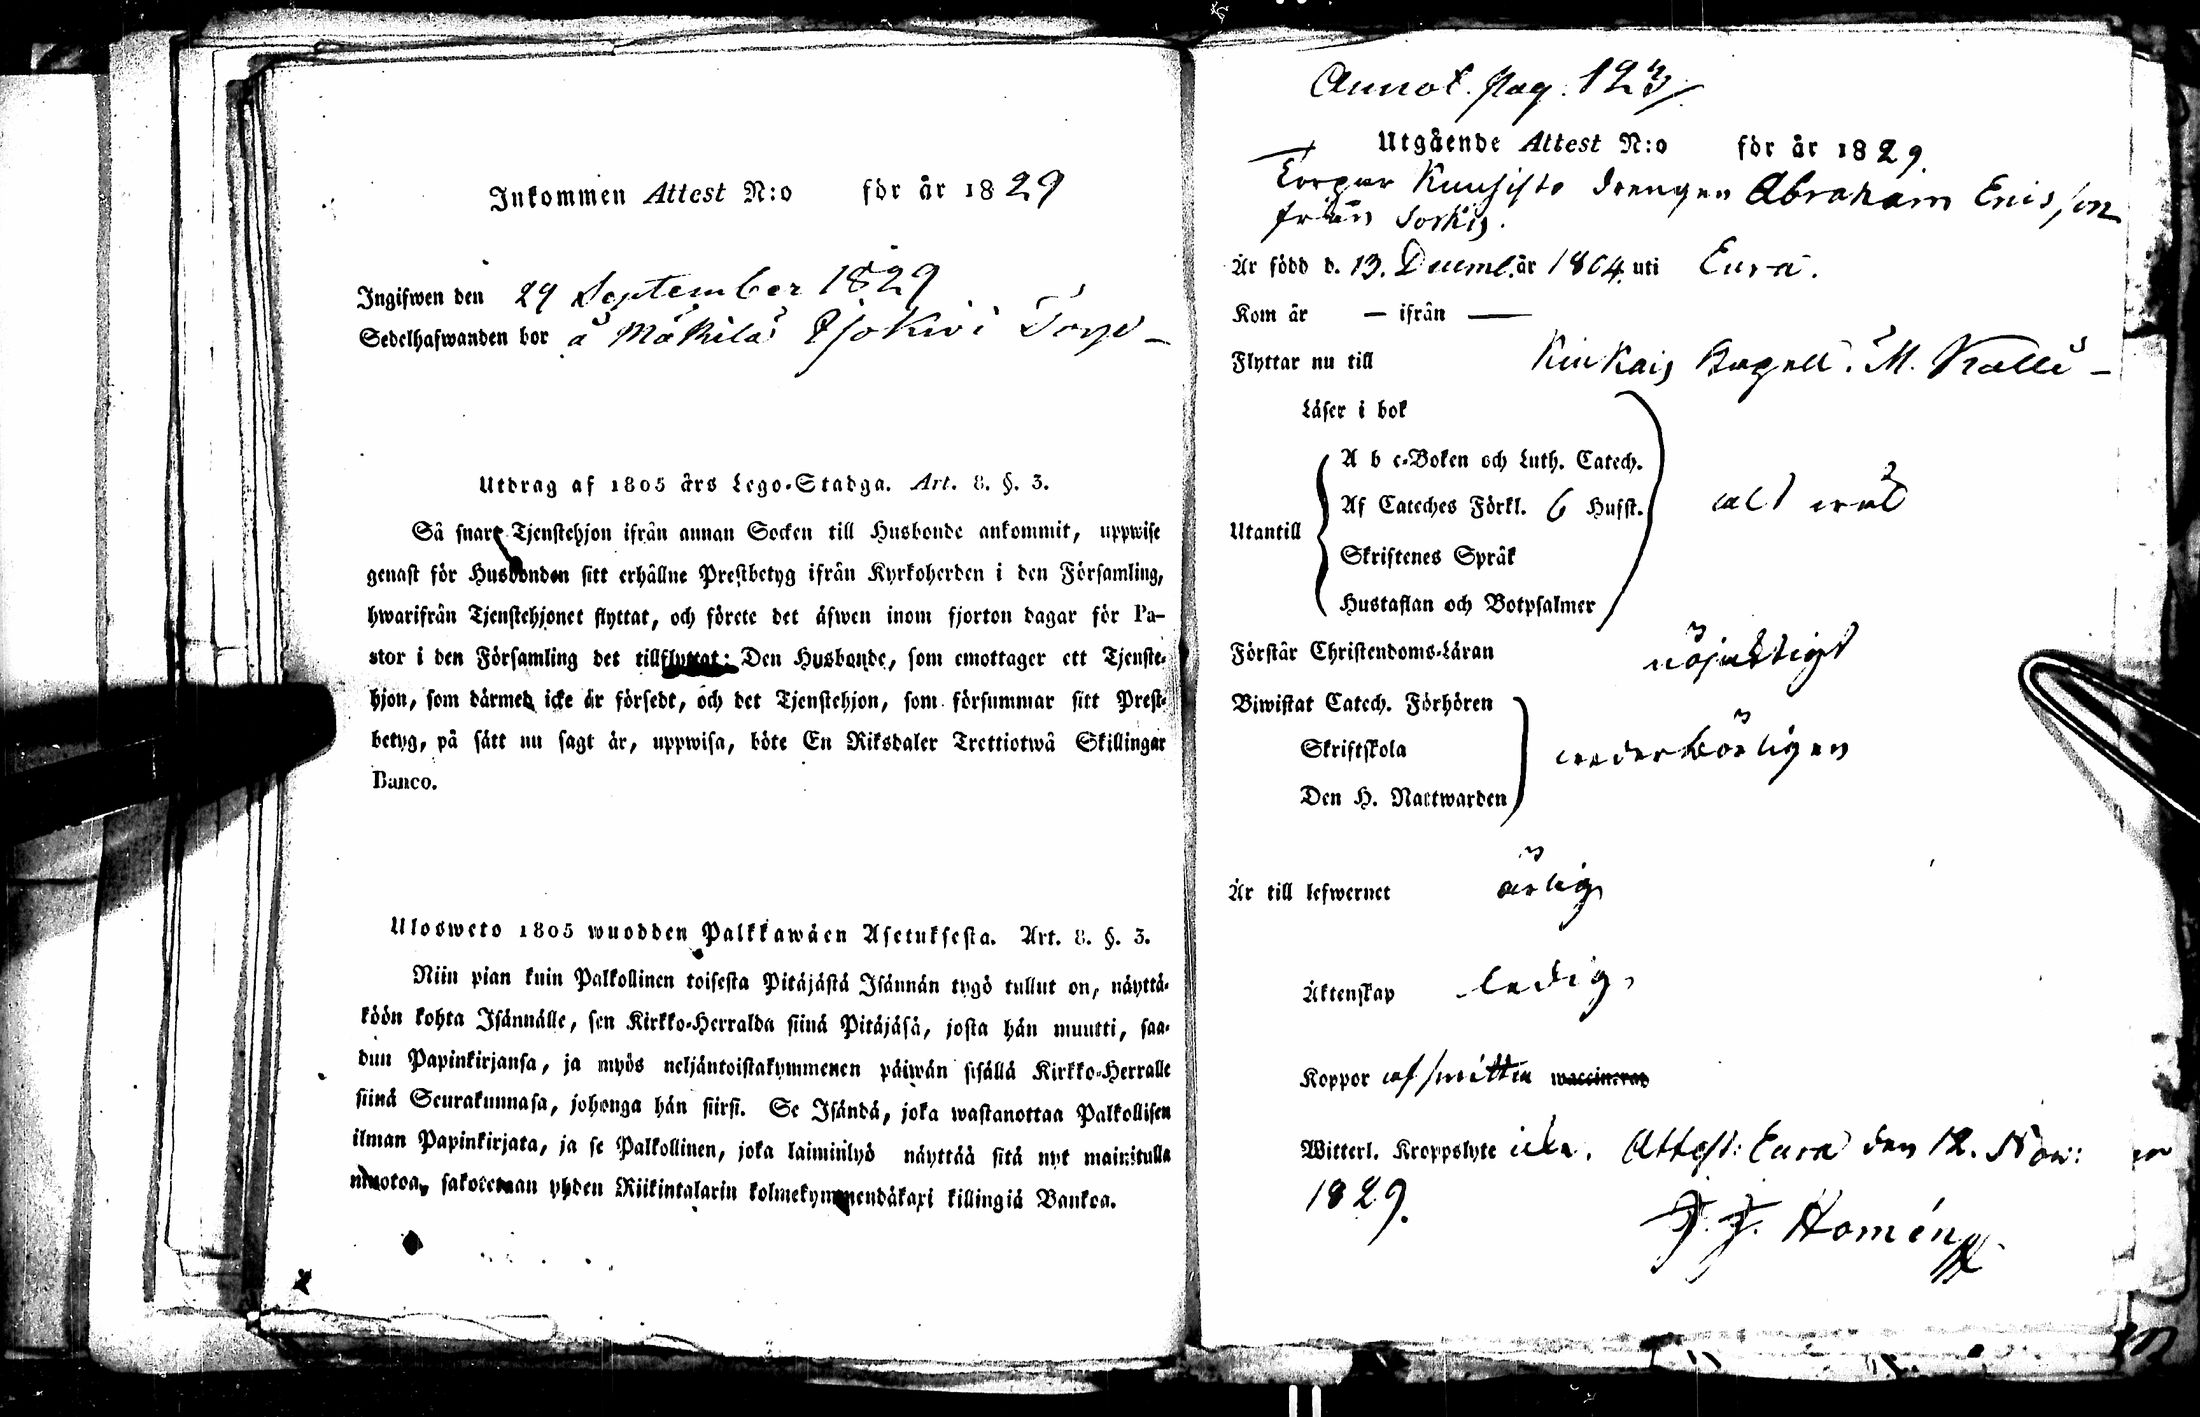 Inkommen Attest N:o för år 1829
Ingifwen den 29 September 1829
Sedelhafwanden bor å Mäkilä Isokivi Torp –
Utdrag af 1805 års Lego-Stadga. Art. 8. §. 3.
Så snart Tjenstehjon ifrån annan Socken till Husbonde ankommit, uppwise
genast för Husbonden sitt erhållne Prestbetyg ifrån Kyrkoherden i den Församling,
hwarifrån Tjenstehjonet flyttat, och förete det äfwen inom fjorton dagar för Pa-
stor i den Församling det tillflyttat: Den Husbonde, som emottager ett Tjenste-
hjon, som därmed icke är försedt, och det Tjenstehjon, som försummar sitt Prest-
betyg, på sätt nu sagt är, uppwisa, böte En Riksdaler Trettiotwå Skillingar
Banco.
Ulosweto 1805 wuodden Palkkawäen Asetuksesta. Art. 8. §. 3.
Niin pian kuin Palkollinen toisesta Pitäjästä Isännän tygö tullut on, näyttä-
köön kohta Isännälle, sen Kirkko-Herralda siinä Pitäjäsä, josta hän muutti, saa-
dun Papinkirjansa, ja myös neljäntoistakymmenen päiwän sisällä Kirkko-Herralle
siinä Seurakunnasa, johonga hän siirsi. Se Isändä, joka wastanottaa Palkollisen
ilman Papinkirjata, ja se Palkollinen, joka laiminlyö näyttää sitä nyt mainitulla
muotoa, sakotetaan yhden Riikintalarin kolmekymmendäkaxi killingiä Bankoa.
Annot. pag. 123/.
Utgående Attest N:o för år 1829.
Torpar Kuusisto drengen Abraham Ericsson
från Sorkis.
Är född d. 13. Decemb. år 1804. uti Eura.
Kom år — ifrån —
Flyttar nu till Kiukais Kapell. M. Kalli –
Läser i bok
Utantill
A b c-Boken och Luth. Catech.
Af Cateches Förkl. 6 Hufst.
Skriftenes Språk
Hustaflan och Botpsalmer
alt wäl
Förstår Christendoms-Läran nöjaktigt
Biwistat Catech. Förhören
Skriftskola
Den H. Nattwarden
wederbörligen
Är till lefwernet ärlig
Äktenskap ledig,
Koppor af smitta waccinerad
Witterl. Kroppslyte icke. Attest: Eura den 12. Nov:
1829.
F. F. Homén